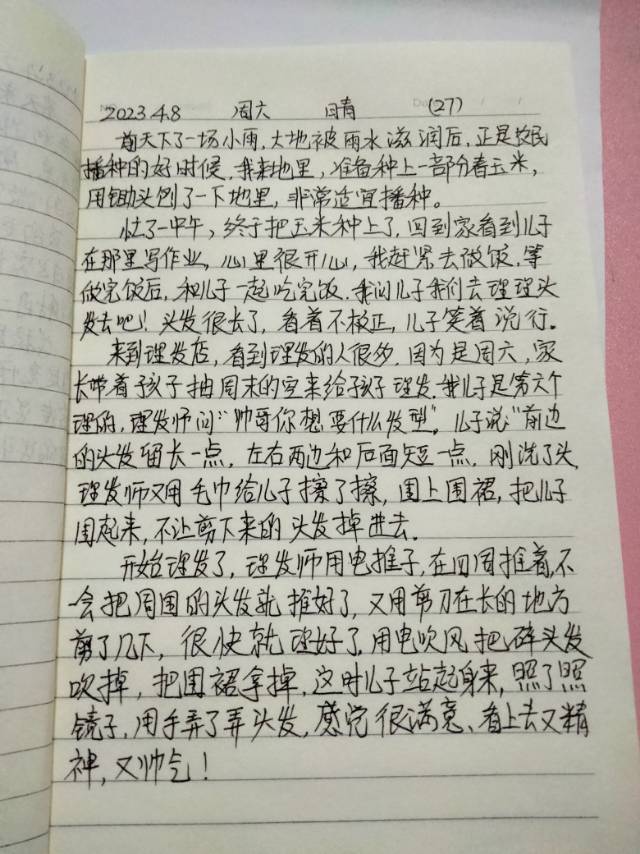 2023.4.8 周六 晴 (27)
前天下了一场小雨,大地被雨水滋润后,正是农民
播种的好时候,我来地里,准备种上一部分春玉米,
用锄头刨了一下地里,非常适宜播种。
忙了一中午,终于把玉米种上了,回到家看到儿子
在那里写作业,心里很开心,我赶紧去做饭,等
做完饭后,和儿子一起吃完饭,我问儿子我们去理理头
发去吧!头发很长了,看着不板正,儿子笑着说行。
来到理发店,看到理发的人很多,因为是周六,家
长带着孩子抽周末的空来给孩子理发,我儿子是第六个
理的,理发师问:“帅哥你想要什么发型”。儿子说“前边
的头发留长一点,左右两边和后面短一点,刚洗了头,
理发师又用毛巾给儿子擦了擦,围上围裙,把儿子
围起来,不让剪下来的头发掉进去.
开始理发了,理发师用电推子,在四周推着,不
一会把周围的头发就推好了,又用剪刀在长的地方
剪了几下,很快就理好了,用电吹风把碎头发
吹掉,把围裙拿掉,这时儿子站起身来,照了照
镜子,用手弄了弄头发,感觉很满意、看上去又精
神,又帅气!